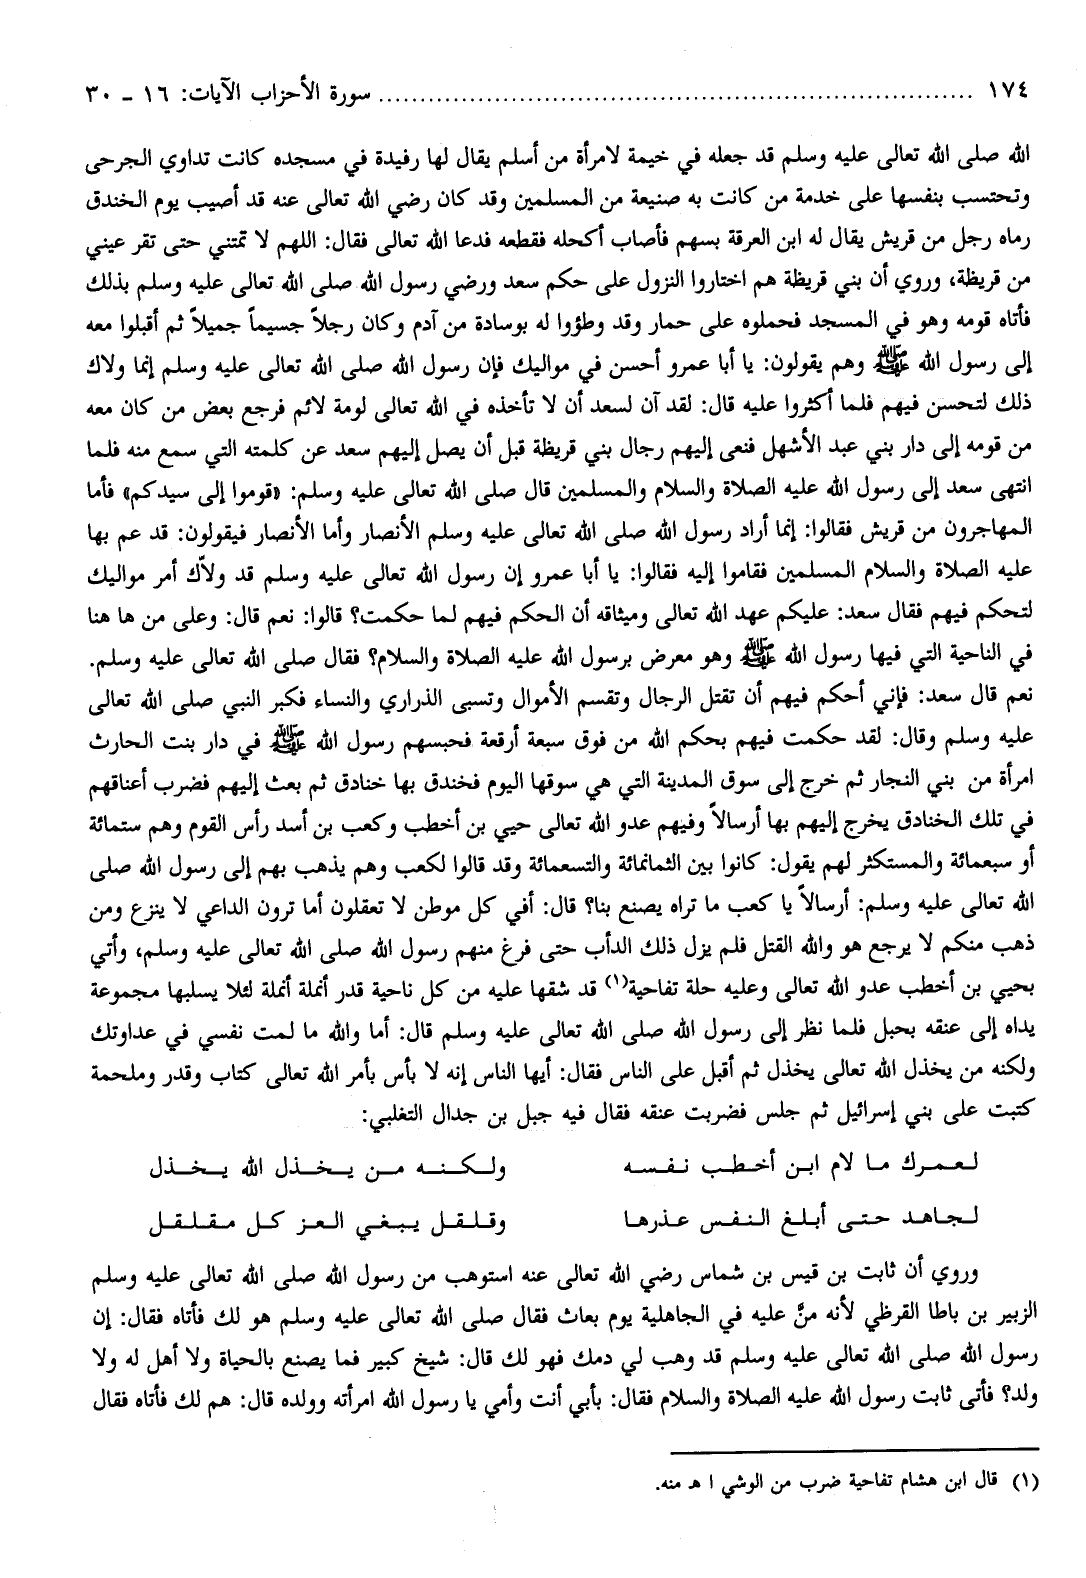 ١٧٤ ........................................................................ سورة الأحزاب الآيات: ١٦ - ٣٠
الله صلى الله تعالى عليه وسلم قد جعله في خيمة لامرأة من أسلم يقال لها رفيدة في مسجده كانت تداوي الجرحى
وتحتسب بنفسها على خدمة من كانت به صنيعة من المسلمين وقد كان رضي الله تعالى عنه قد أصيب يوم الخندق
رماه رجل من قريش يقال له ابن العرقة بسهم فأصاب أكحله فقطعه فدعا الله تعالى فقال: اللهم لا تمتني حتى تقر عيني
من قريظة، وروي أن بني قريظة هم اختاروا النزول على حكم سعد ورضي رسول الله صلى الله تعالى عليه وسلم بذلك
فأتاه قومه وهو في المسجد فحملوه على حمار وقد وطؤوا له بوسادة من آدم وكان رجلاً جسيماً جميلاً ثم أقبلوا معه
إلى رسول الله ﷺ وهم يقولون: يا أبا عمرو أحسن في مواليك فإن رسول الله صلى الله تعالى عليه وسلم إنما ولاك
ذلك لتحسن فيهم فلما أكثروا عليه قال: لقد آن لسعد أن لا تأخذه في الله تعالى لومة لائم فرجع بعض من كان معه
من قومه إلى دار بني عبد الأشهل فنعى إليهم رجال بني قريظة قبل أن يصل إليهم سعد عن كلمته التي سمع منه فلما
انتهى سعد إلى رسول الله عليه الصلاة والسلام والمسلمين قال صلى الله تعالى عليه وسلم: «قوموا إلى سيدكم» فأما
المهاجرون من قريش فقالوا: إنما أراد رسول الله صلى الله تعالى عليه وسلم الأنصار وأما الأنصار فيقولون: قد عم بها
عليه الصلاة والسلام المسلمين فقاموا إليه فقالوا: يا أبا عمرو إن رسول الله تعالى عليه وسلم قد ولاّك أمر مواليك
لتحكم فيهم فقال سعد: عليكم عهد الله تعالى وميثاقه أن الحكم فيهم لما حكمت؟ قالوا: نعم قال: وعلى من ها هنا
في الناحية التي فيها رسول الله ﷺ وهو معرض برسول الله عليه الصلاة والسلام؟ فقال صلى الله تعالى عليه وسلم.
نعم قال سعد: فإني أحكم فيهم أن تقتل الرجال وتقسم الأموال وتسبى الذراري والنساء فكبر النبي صلى الله تعالى
عليه وسلم وقال: لقد حكمت فيهم بحكم الله من فوق سبعة أرقعة فحبسهم رسول الله ﷺ في دار بنت الحارث
امرأة من بني النجار ثم خرج إلى سوق المدينة التي هي سوقها اليوم فخندق بها خنادق ثم بعث إليهم فضرب أعناقهم
في تلك الخنادق يخرج إليهم بها أرسالاً وفيهم عدو الله تعالى حيي بن أخطب وكعب بن أسد رأس القوم وهم ستمائة
أو سبعمائة والمستكثر لهم يقول: كانوا بين الثمانمائة والتسعمائة وقد قالوا لكعب وهم يذهب بهم إلى رسول الله صلى
الله تعالى عليه وسلم: أرسالاً يا كعب ما تراه يصنع بنا؟ قال: أفي كل موطن لا تعقلون أما ترون الداعي لا ينزع ومن
ذهب منكم لا يرجع هو والله القتل فلم يزل ذلك الدأب حتى فرغ منهم رسول الله صلى الله تعالى عليه وسلم، وأتي
بحيي بن أخطب عدو الله تعالى وعليه حلة تفاحية(١) قد شقها عليه من كل ناحية قدر أنملة أنملة لئلا يسلبها مجموعة
يداه إلى عنقه بحبل فلما نظر إلى رسول الله صلى الله تعالى عليه وسلم قال: أما والله ما لمت نفسي في عداوتك
ولكنه من يخذل الله تعالى يخذل ثم أقبل على الناس فقال: أيها الناس إنه لا بأس بأمر الله تعالى كتاب وقدر وملحمة
كتبت على بني إسرائيل ثم جلس فضربت عنقه فقال فيه جبل بن جدال التغلبي:
لعمرك ما لام ابن أخطب نفسه ولكنه من يخذل الله يخذل
لجاهد حتى أبلغ النفس عذرها وقلقل يبغي العز كل مقلقل
وروي أن ثابت بن قيس بن شماس رضي الله تعالى عنه استوهب من رسول الله صلى الله تعالى عليه وسلم
الزبير بن باطا القرظي لأنه منَّ عليه في الجاهلية يوم بعاث فقال صلى الله تعالى عليه وسلم هو لك فأتاه فقال: إن
رسول الله صلى الله تعالى عليه وسلم قد وهب لي دمك فهو لك قال: شيخ كبير فما يصنع بالحياة ولا أهل له ولا
ولد؟ فأتى ثابت رسول الله عليه الصلاة والسلام فقال: بأبي أنت وأمي يا رسول الله امرأته وولده قال: هم لك فأتاه فقال
(١) قال ابن هشام تفاحية ضرب من الوشي ا هـ منه.